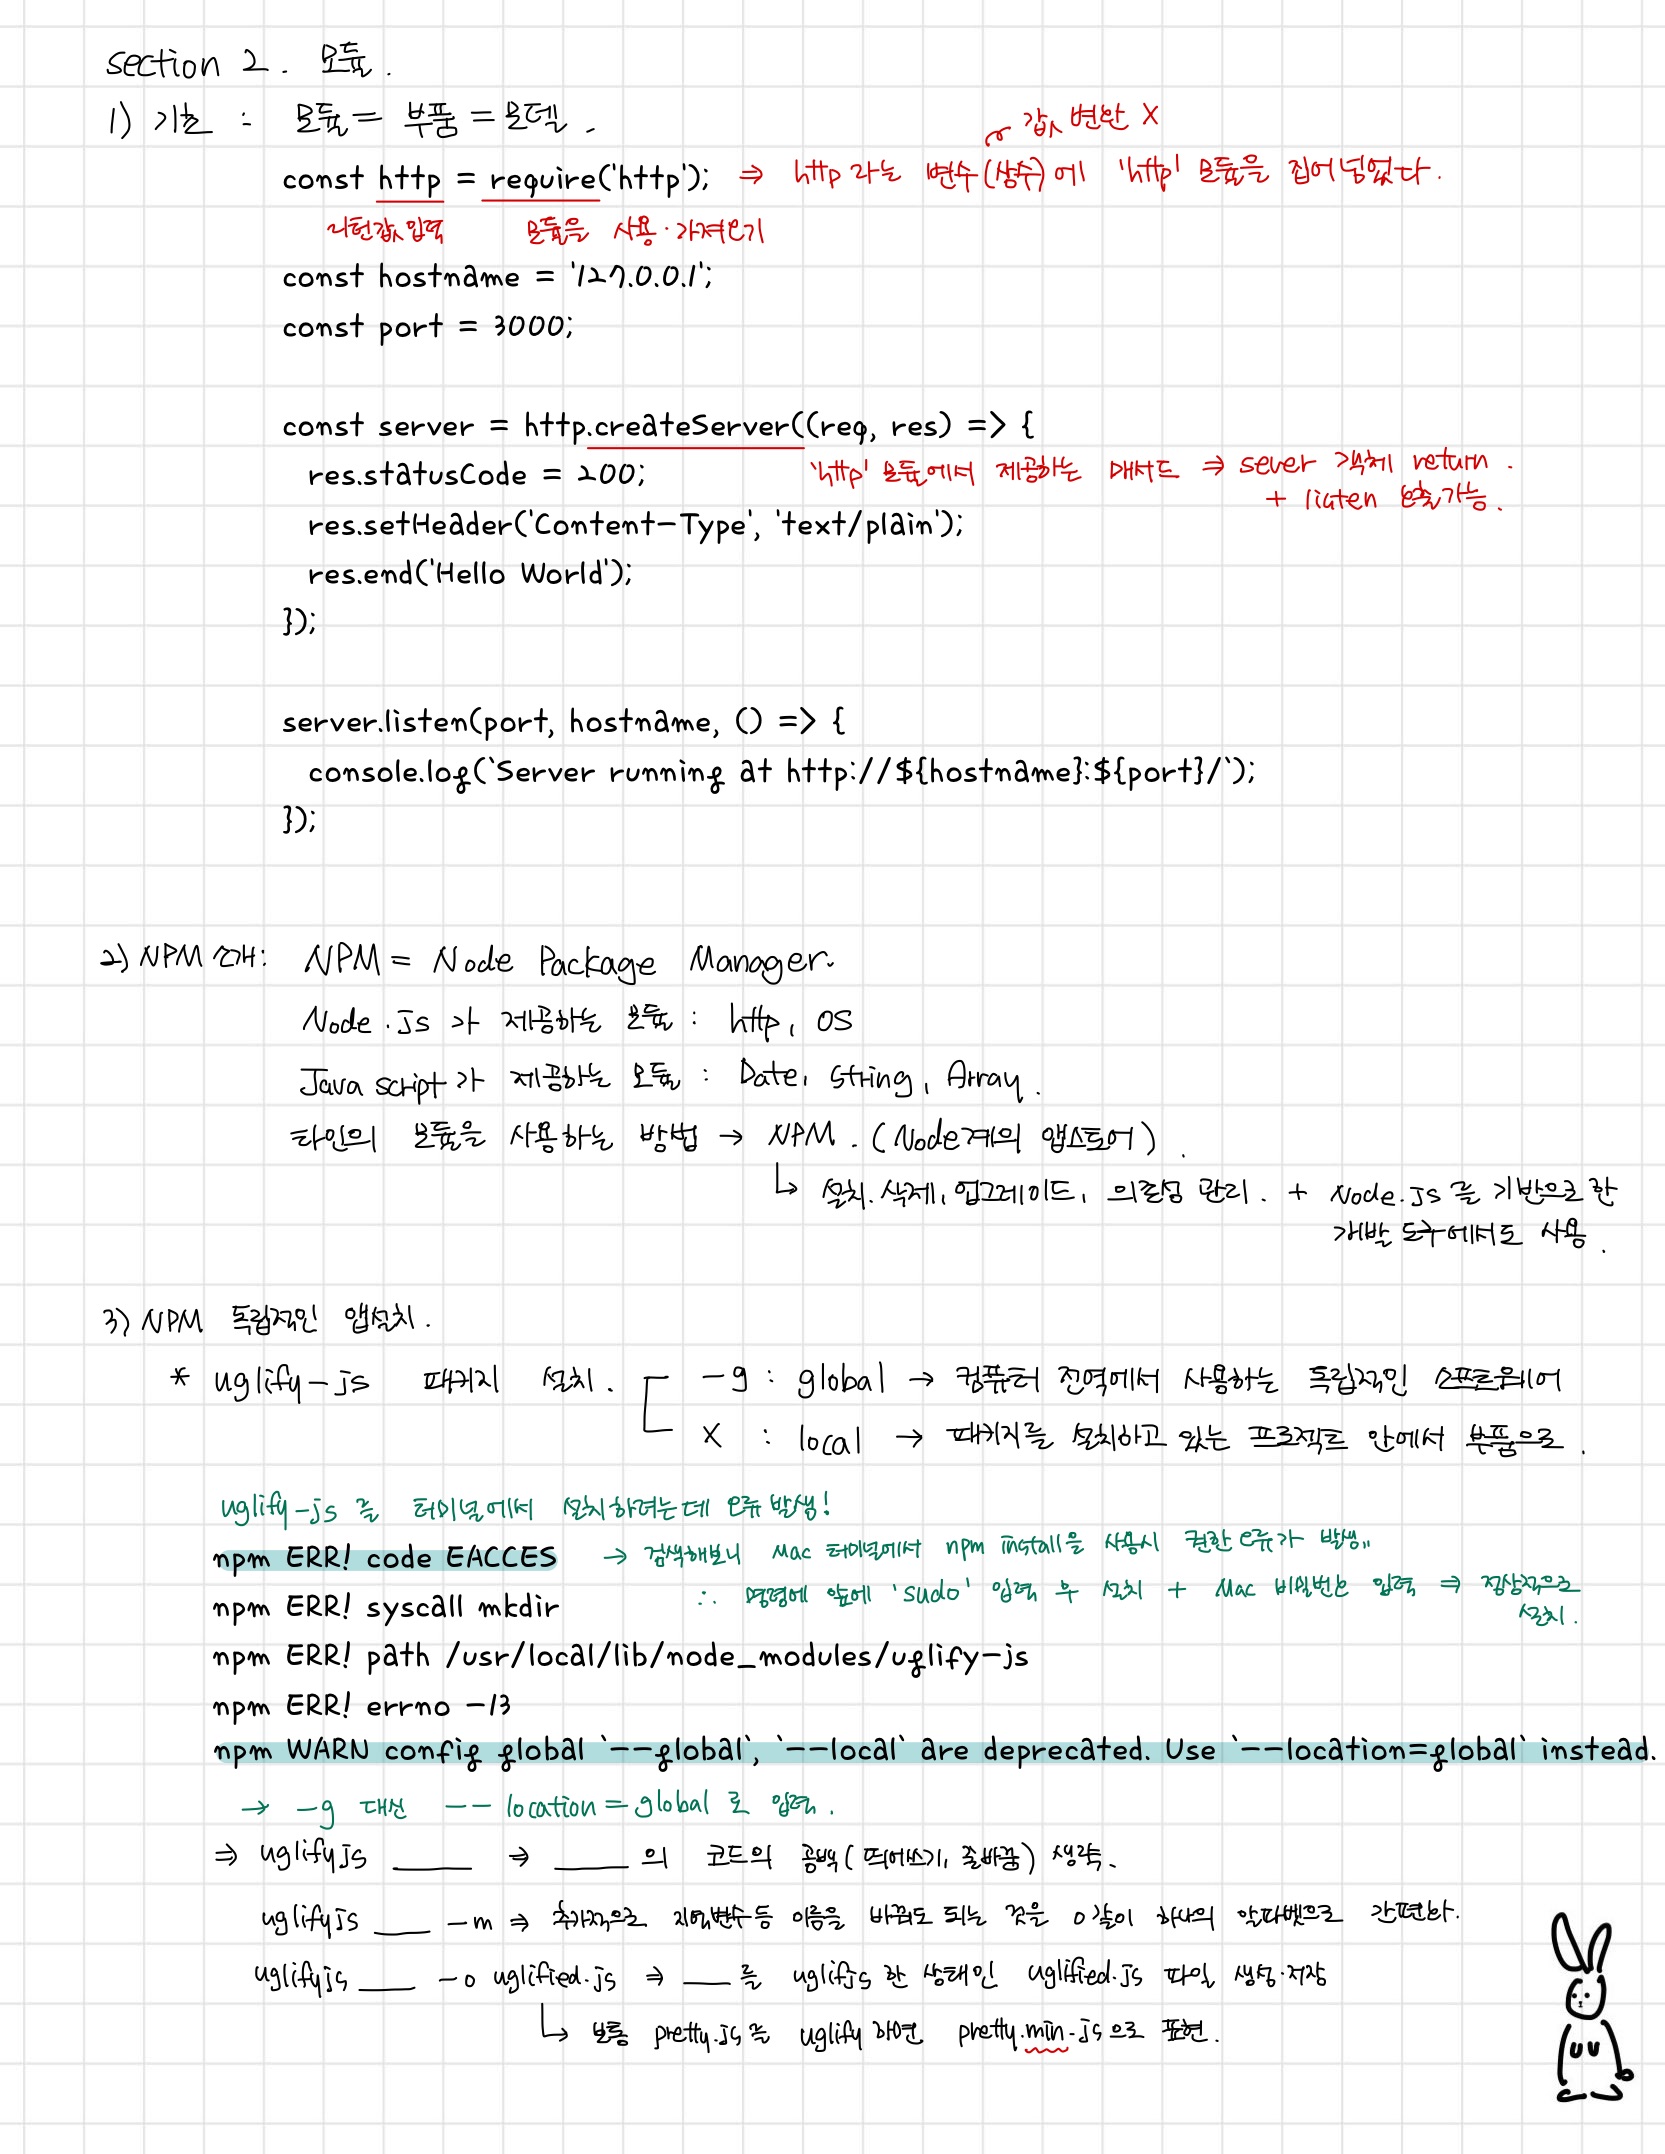 section 2. 모듈.
1) 기초 : 모듈 = 부품 = 모델.
값 변환 X
const http = require('http'); ⇒ http 라는 변수(상수)에 'http' 모듈을 집어넣었다.
리턴값 입력 모듈을 사용·가져오기
const hostname = '127.0.0.1';
const port = 3000;
const server = http.createServer((req, res) => {
res.statusCode = 200; 'http' 모듈에서 제공하는 매서드 ⇒ sever 객체 return.
+ listen 호출가능.
res.setHeader('Content-Type', 'text/plain');
res.end('Hello World');
});
server.listen(port, hostname, () => {
console.log(`Server running at http://${hostname}:${port}/`);
});
2) NPM 소개: NPM = Node Package Manager.
Node.js 가 제공하는 모듈 : http, OS
Java script가 제공하는 모듈 : Date, String, Array.
타인의 모듈을 사용하는 방법 → NPM. (Node계의 앱스토어).
↳ 설치. 삭제, 업그레이드, 의존성 관리. + Node.js를 기반으로 한
개발 도구에서도 사용.
3) NPM 독립적인 앱설치.
* uglify-js 패키지 설치. -g : global → 컴퓨터 전역에서 사용하는 독립적인 소프트웨어
X : local → 패키지를 설치하고 있는 프로젝트 안에서 부품으로.
uglify-js 를 터미널에서 설치하려는데 오류 발생!
npm ERR! code EACCES → 검색해보니 Mac 터미널에서 npm install을 사용시 권한 오류가 발생..
∴ 명령에 앞에 'sudo' 입력 후 설치 + Mac 비밀번호 입력 ⇒ 정상적으로
설치.
npm ERR! syscall mkdir
npm ERR! path /usr/local/lib/node_modules/uglify-js
npm ERR! errno -13
npm WARN config global `--global`, `--local` are deprecated. Use `--location=global` instead.
→ -g 대신 --location=global 로 입력.
⇒ uglifyjs ____ ⇒ ____의 코드의 공백(띄어쓰기, 줄바꿈) 생략.
uglifyjs ____ -m ⇒ 추가적으로 지역변수등 이름을 바꿔도 되는 것을 o같이 하나의 알파벳으로 간편화.
uglifyjs ____ -o uglified.js ⇒ ____를 uglifjs 한 상태인 uglified.js 파일 생성·저장
↳ 보통 pretty.js를 uglify 하면 pretty.min.js으로 표현.